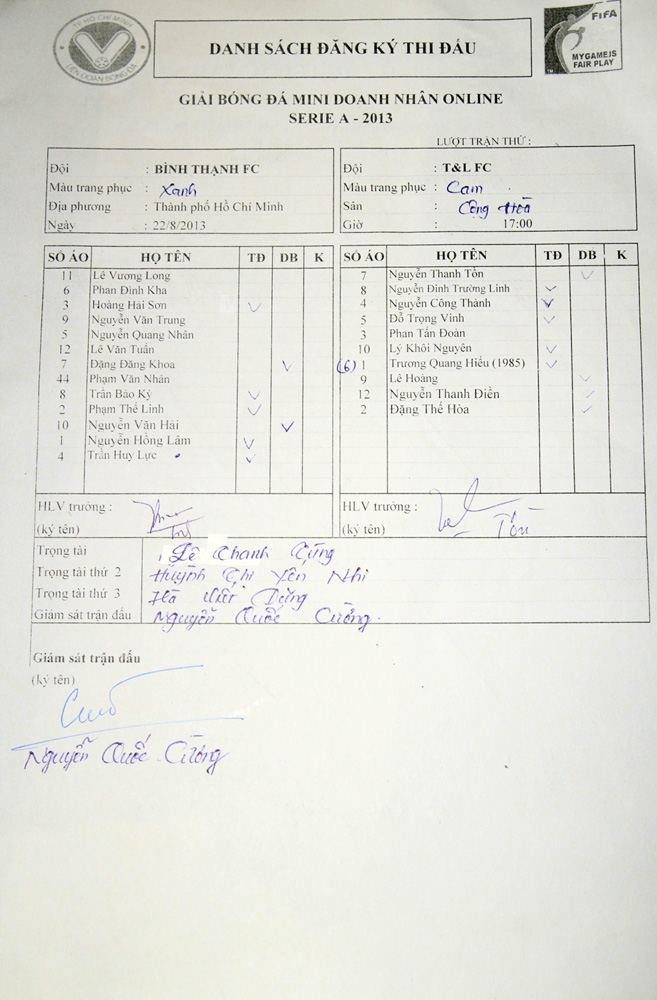 TP HỒ CHÍ MINH
LIÊN ĐOÀN BÓNG ĐÁ
DANH SÁCH ĐĂNG KÝ THI ĐẤU
FIFA
MY GAME IS
FAIR PLAY
GIẢI BÓNG ĐÁ MINI DOANH NHÂN ONLINE
SERIE A - 2013
LƯỢT TRẬN THỨ :
Đội : BÌNH THẠNH FC
Màu trang phục : Xanh
Địa phương : Thành phố Hồ Chí Minh
Ngày : 22/8/2013
Đội : T&L FC
Màu trang phục : Cam
Sân : Cộng Hòa
Giờ : 17:00
SỐ ÁO HỌ TÊN TĐ DB K
11 Lê Vương Long
6 Phan Đình Kha
3 Hoàng Hải Sơn ✓
9 Nguyễn Văn Trung
5 Nguyễn Quang Nhân
12 Lê Văn Tuấn
7 Đặng Đăng Khoa ✓
44 Phạm Văn Nhân
8 Trần Bảo Kỳ ✓
2 Phạm Thế Linh ✓
10 Nguyễn Văn Hải ✓
1 Nguyễn Hồng Lâm ✓
4 Trần Huy Lực ✓
SỐ ÁO HỌ TÊN TĐ DB K
7 Nguyễn Thanh Tồn ✓
8 Nguyễn Đình Trường Linh ✓
4 Nguyễn Công Thành ✓
5 Đỗ Trọng Vinh ✓
3 Phan Tấn Đoàn
10 Lý Khôi Nguyên ✓
(6) 1 Trương Quang Hiếu (1985) ✓
9 Lê Hoàng ✓
12 Nguyễn Thanh Điền ✓
2 Đặng Thế Hòa ✓
HLV trưởng :
(ký tên)
HLV trưởng :
(ký tên) Tồn
Trọng tài Lê Thanh Tùng
Trọng tài thứ 2 Huỳnh Thị Yến Nhi
Trọng tài thứ 3 Hà Việt Dũng
Giám sát trận đấu Nguyễn Quốc Cường.
Giám sát trận đấu
(ký tên)
Nguyễn Quốc Cường